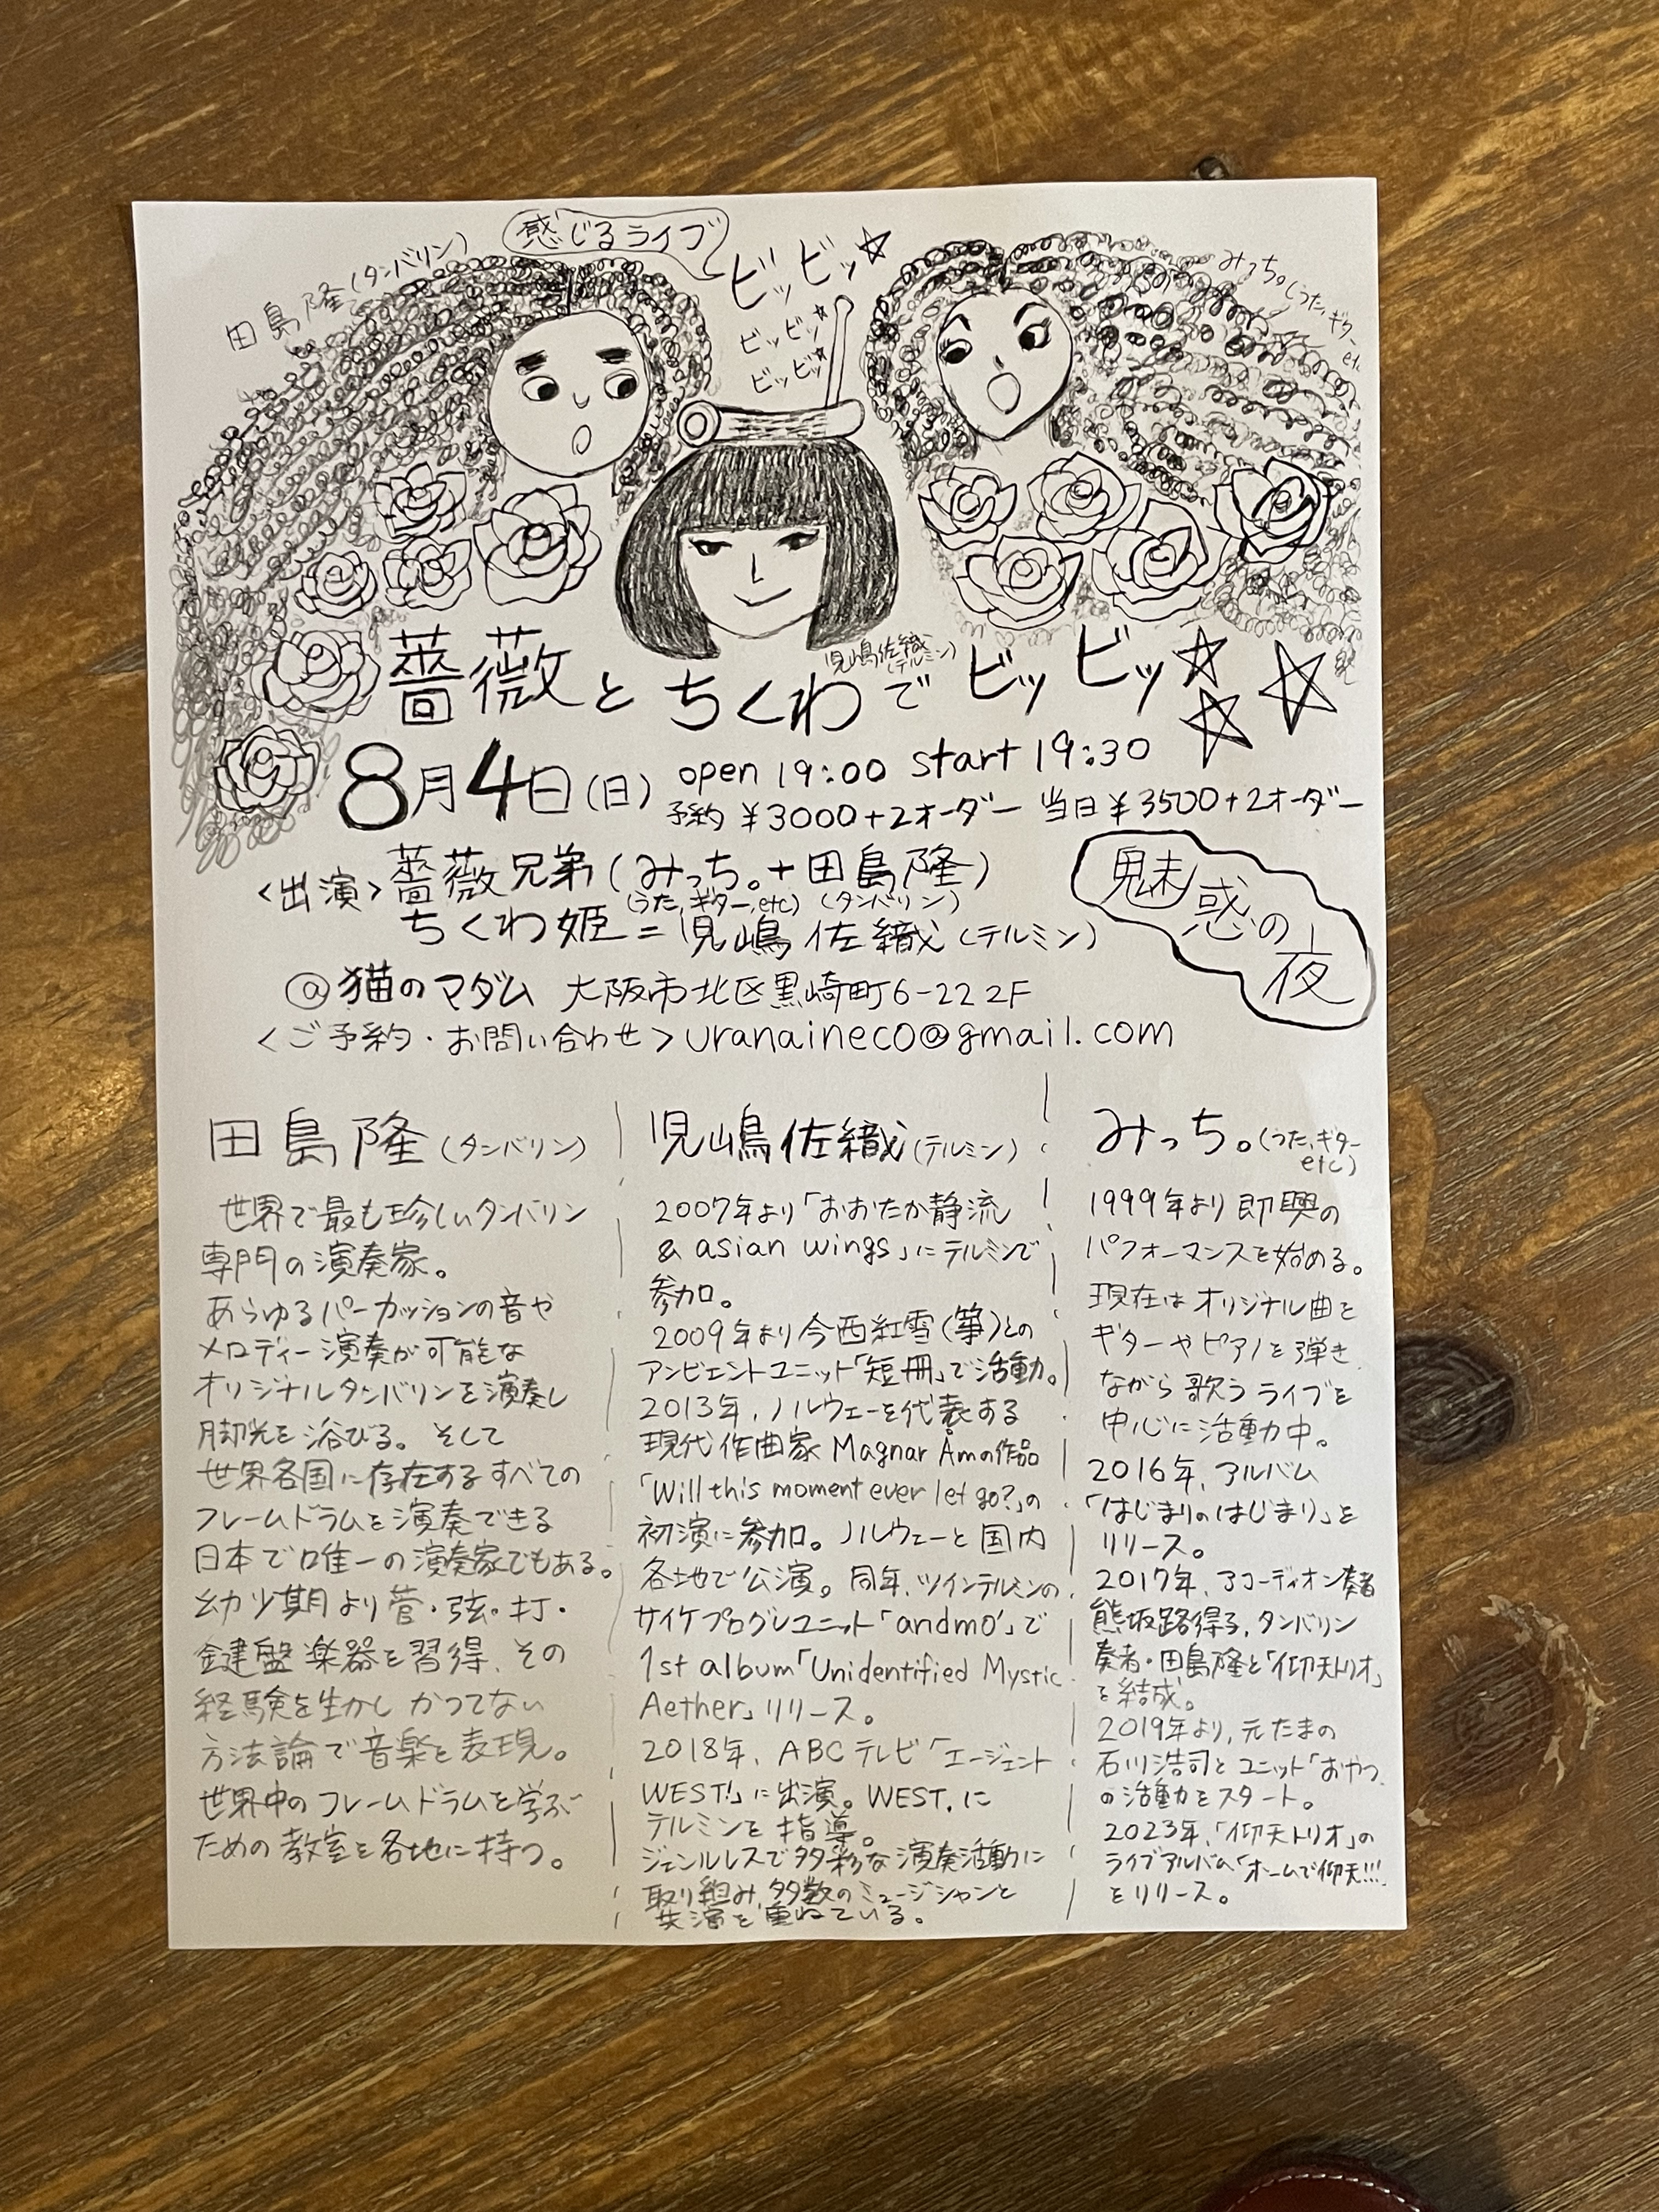 感じるライブ
ビッビッ☆
田島隆(タンバリン)
みっち。(うた,ギターetc
ビッビッ☆
ビッビッ☆
児嶋佐織
(テルミン)
薔薇とちくわでビッビッ☆☆☆
8月4日(日) open 19:00 start 19:30
予約 ¥3000+2オーダー 当日¥3500+2オーダー
<出演>薔薇兄弟(みっち。+田島隆)
(うた,ギター,etc) (タンバリン)
ちくわ姫=児嶋佐織(テルミン)
魅惑の夜
@猫のマダム 大阪市北区黒崎町6-22 2F
<ご予約・お問い合わせ>uranaineco@gmail.com
田島隆(タンバリン)
世界で最も珍しいタンバリン
専門の演奏家。
あらゆるパーカッションの音や
メロディー演奏が可能な
オリジナルタンバリンを演奏し
脚光を浴びる。そして
世界各国に存在するすべての
フレームドラムを演奏できる
日本で唯一の演奏家でもある。
幼少期より菅・弦・打・
鍵盤楽器を習得、その
経験を生かしかつてない
方法論で音楽を表現。
世界中のフレームドラムを学ぶ
ための教室を各地に持つ。
児嶋佐織(テルミン)
2007年より「おおたか静流
& asian wings」にテルミンで
参加。
2009年より今西紅雪(箏)との
アンビエントユニット「短冊」で活動。
2013年、ノルウェーを代表する
現代作曲家 Magnar Åmの作品
「Will this moment ever let go?」の
初演に参加。ノルウェーと国内
各地で公演。同年、ツインテルミンの
サイケプログレユニット「andmo'」で
1st album「Unidentified Mystic
Aether」リリース。
2018年、ABCテレビ「エージェント
WEST!」に出演。WEST.に
テルミンを指導。
ジャンルレスで多彩な演奏活動に
取り組み、多数のミュージシャンと
共演を重ねている。
みっち。(うた,ギター
etc)
1999年より即興の
パフォーマンスを始める。
現在はオリジナル曲を
ギターやピアノを弾き
ながら歌うライブを
中心に活動中。
2016年、アルバム
「はじまりのはじまり」を
リリース。
2017年、アコーディオン奏者
熊坂路得子、タンバリン
奏者・田島隆と「仰天トリオ」
を結成。
2019年より、元たまの
石川浩司とユニット「おやつ」
の活動をスタート。
2023年、「仰天トリオ」の
ライブアルバム「ホームで仰天!!!」
をリリース。